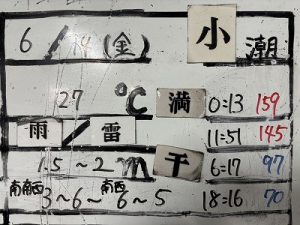 6/14(金) 小潮
27℃ 満 0:13 159
雨/雷 11:51 145
1.5~2m 干 6:17 97
南南西3~6~南西6~5 18:16 70